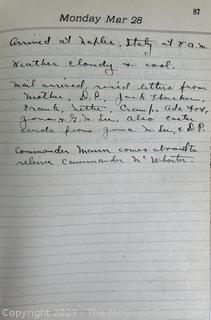 87
Monday Mar 28
Arrived at Naples, Italy at 8 a.m.
Weather cloudy & cool.
Mail arrived, rec'd letters from
Mother, D.P., Jack Thacher,
Frank, Nettie, Cramp, Ada Fox,
& G. M. Lee. Also Easter
cards from M. Lee, & D.P.
Commander Mann comes aboard to
relieve Commander McWhorter.
Copyright 2023 - The McGuire